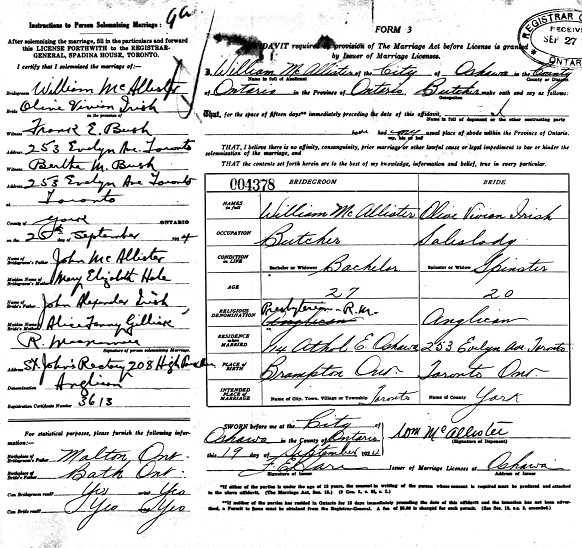 Instructions to Person Solemnizing Marriage:
After solemnizing the marriage, fill in the particulars and forward
this LICENSE FORTHWITH to the REGISTRAR-
GENERAL, SPADINA HOUSE, TORONTO.
I certify that I solemnized the marriage of:—
Bridegroom William McAllister
Bride Olive Vivian Irish
in the presence of
Witness Frank E. Bush
Address 253 Evelyn Ave. Toronto
Witness Bertha M. Bush
Address 253 Evelyn Ave Toronto
at Toronto
County of York ONTARIO
on the 25th day of September 192
Name of Bridegroom's Father John McAllister
Maiden Name of Bridegroom's Mother Mary Elizabeth Hole
Name of Bride's Father John Alexander Irish
Maiden Name of Bride's Mother Alice Fanny
Signature of person solemnizing Marriage.
Address St. John's Rectory 208 High Park Ave
Denomination Anglican
Registration Certificate Number 3613
For statistical purposes, please furnish the following information:
Birthplace of Bridegroom's Father Malton, Ont.
Birthplace of Bride's Father Bath Ont.
Can Bridegroom read? Yes write Yes
Can Bride read? Yes Yes
REGISTRAR
RECEIVED
SEP 27
ONTARIO
FORM 3
AFFIDAVIT required by provision of The Marriage Act before License is granted
by Issuer of Marriage Licenses.
I, William McAllister of the City of Oshawa in the County
Name in full of Deponent County or District
of Ontario in the Province of Ontario Butcher make oath and say as follows:
Occupation
That, for the space of fifteen days** immediately preceding the date of this affidavit, I
Name in full of deponent or the other contracting party
have had my usual place of abode within the Province of Ontario.
my, his or her
THAT, I believe there is no affinity, consanguinity, prior marriage or other lawful cause or legal impediment to bar or hinder
the solemnization of the marriage, and
THAT the contents set forth herein are to the best of my knowledge, information and belief, true in every particular.
004378 BRIDEGROOM BRIDE
NAMES in full William McAllister Olive Vivian Irish
OCCUPATION Butcher Saleslady
CONDITION IN LIFE Bachelor or Widower Bachelor Spinster or Widow Spinster
AGE 27 20
RELIGIOUS DENOMINATION Presbyterian - R.M. Anglican Anglican
RESIDENCE WHEN MARRIED 114 Athol E. Oshawa 253 Evelyn Ave. Toronto
PLACE OF BIRTH Brampton Ont. Toronto Ont
INTENDED PLACE OF MARRIAGE Name of City, Town, Village or Township Toronto Name of County York
SWORN before me at the City of
Oshawa in the County of Ontario Wm McAllister
(Signature of Deponent)
this 19 day of September 192
Issuer of Marriage Licenses at Oshawa
Signature of Issuer Address of Issuer
*If either of the parties is under the age of 18 years, the consent in writing of the person whose consent is required must be produced and attached
to the above affidavit. (The Marriage Act, Sec. 15.)
**If neither of the parties has resided in Ontario for 15 days immediately preceding the date of this affidavit and the intention has not been advertised,
a Permit to Issue must be obtained from the Registrar-General. A fee of $5.00 is charged for such permit.